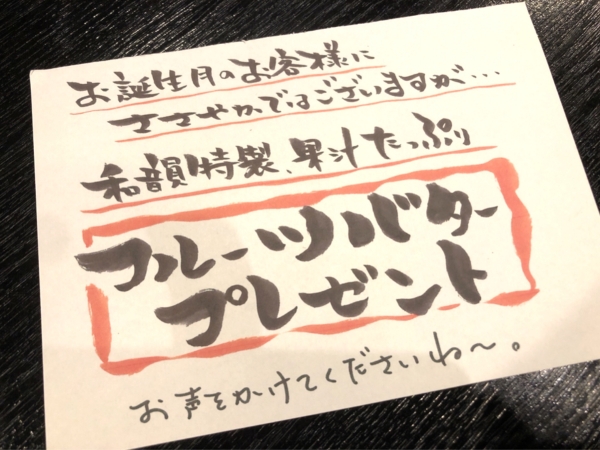 お誕生月のお客様に
ささやかではございますが…
和韻特製、果汁たっぷり
フルーツバター
プレゼント
お声をかけてくださいね〜。